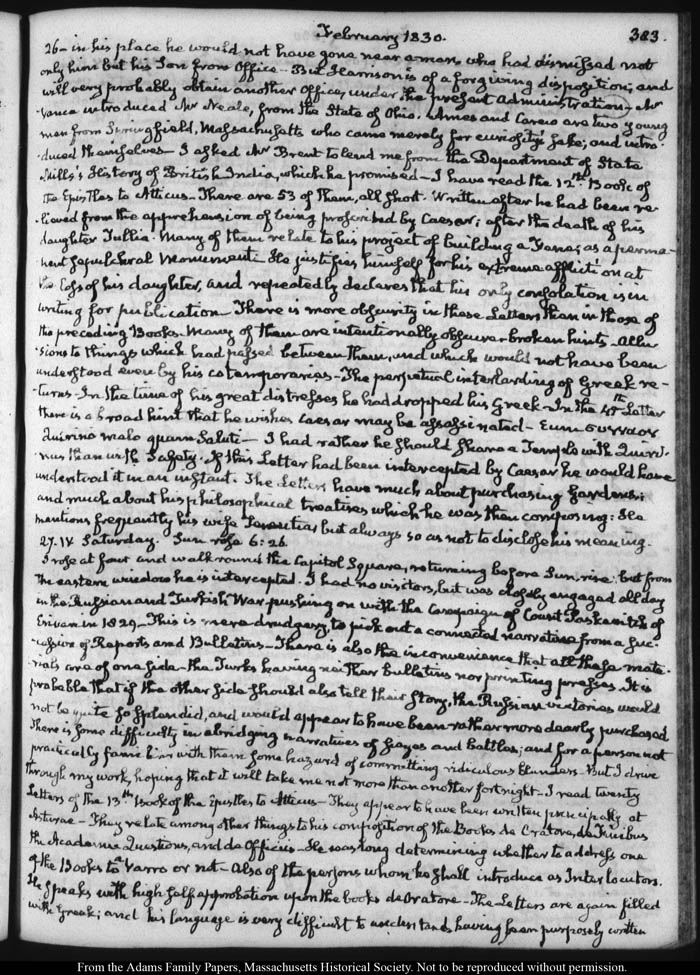 February 1830.
383.
26 – in his place he would not have gone near a man, who had dismissed not
only him but his Son from Office – But Harrison is of a forgiving disposition, and
will very probably obtain another Office, under the present Administration – Mr
Vance introduced Mr Neale, from the State of Ohio. Ames and Carew are two young
men from Springfield, Massachusetts who came merely for curiosity's sake; and intro-
-duced themselves – I asked Mr Brent to lend me from the Department of State
Mills's History of British India, which he promised – I have read the 12th Book of
the Epistles to Atticus – There are 53 of them, all short. Written after he had been re-
-lieved from the apprehension of being proscribed by Caesar; after the death of his
daughter Tullia. Many of them relate to his project of building a Fane, as a perma-
nent sepulchral Monument. He justifies himself for his extreme affliction at
the loss of his daughter, and repeatedly declares that his only consolation is in
writing for publication – There is more obscurity in these Letters than in those of
the preceding Books. Many of them are intentionally obscure – broken hints – Allu-
sions to things which had passed between them, and which would not have been
understood even by his cotemporaries – The perpetual interlarding of Greek re-
-turns – In the time of his great distresses he had dropped his Greek – In the Letter
there is a broad hint that he wishes Caesar may be assassinated – Eum συνναον
Quirino malo quam Saluti – I had rather he should share a Temple with Quiri-
nus than with Safety. If this Letter had been intercepted by Caesar he would have
understood it in an instant. The Letters have much about purchasing Gardens;
and much about his philosophical treatises which he was then composing: He
mentions frequently his wife Terentia; but always so as not to disclose his meaning.
27. IV. Saturday. Sun rose 6:26.
I rose at four and walk round the Capitol Square, returning before Sun-rise; but from
the eastern window he is intercepted. I had no visitors, but was closely engaged all day
in the Russian and Turkish War pushing on with the Campaign of Count Paskewitch of
Erivan in 1829 – This is mere drudgery, to pick out a connected narrative from a suc-
-cession of Reports and Bulletins – There is also the inconvenience that all these mate-
rials are of one side – the Turks having neither bulletins nor printing presses. It is
probable that if the other side should also tell their story, the Russian victories would
not be quite so splendid, and would appear to have been rather more dearly purchased
There is some difficulty in abridging narratives of sieges and battles; and for a person not
practically familiar with them some hazard of committing ridiculous blunders – But I drive
through my work, hoping that it will take me not more than another fortnight – I read twenty
Letters of the 13th book of the Epistles to Atticus – They appear to have been written principally at
Asturae – They relate among other things to his composition of the Books de Oratore, de Finibus
the Academic Questions, and de Officiis – He was long determining whether to address one
of the Books to Varro or not – Also of the persons whom he shall introduce as Interlocutors.
He speaks with high self approbation upon the books de Oratore – The Letters are again filled
with Greek; and his language is very difficult to understand, having been purposely written
From the Adams Family Papers, Massachusetts Historical Society. Not to be reproduced without permission.